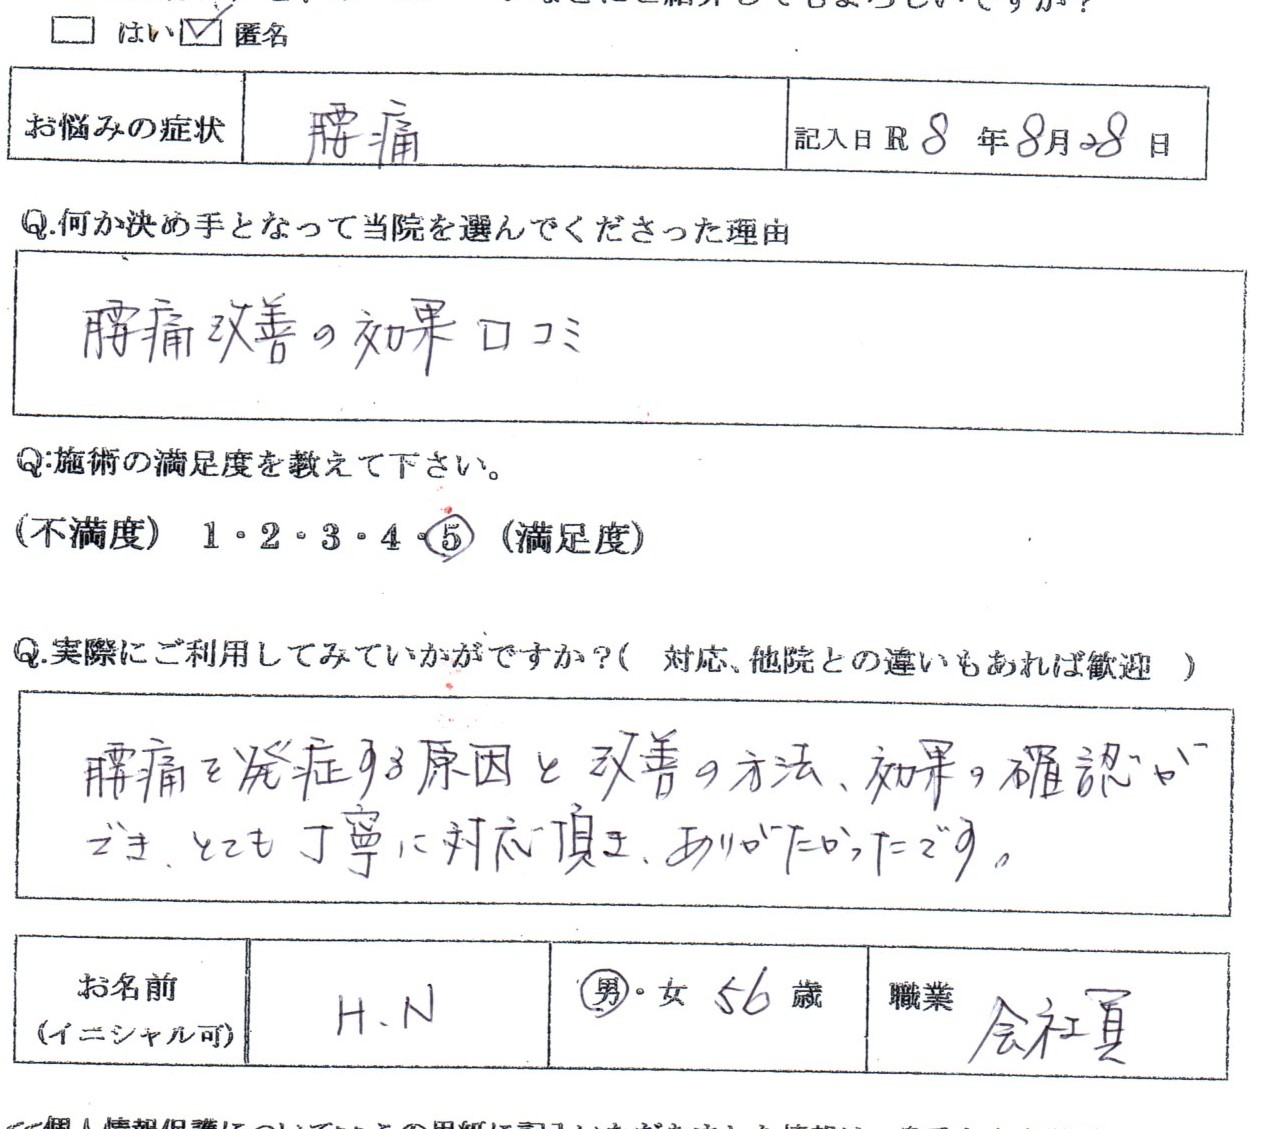 はい 匿名
お悩みの症状 腰痛 記入日 R 8 年 8月 28 日
Q.何か決め手となって当院を選んでくださった理由
腰痛改善の効果 口コミ
Q:施術の満足度を教えて下さい。
(不満度) 1・2・3・4・5 (満足度)
Q.実際にご利用してみていかがですか?( 対応、他院との違いもあれば歓迎 )
腰痛を発症する原因と改善の方法、効果の確認が
でき、とても丁寧に対応頂き、ありがたかったです。
お名前 H.N 男・女 56 歳 職業 会社員
(イニシャル可)